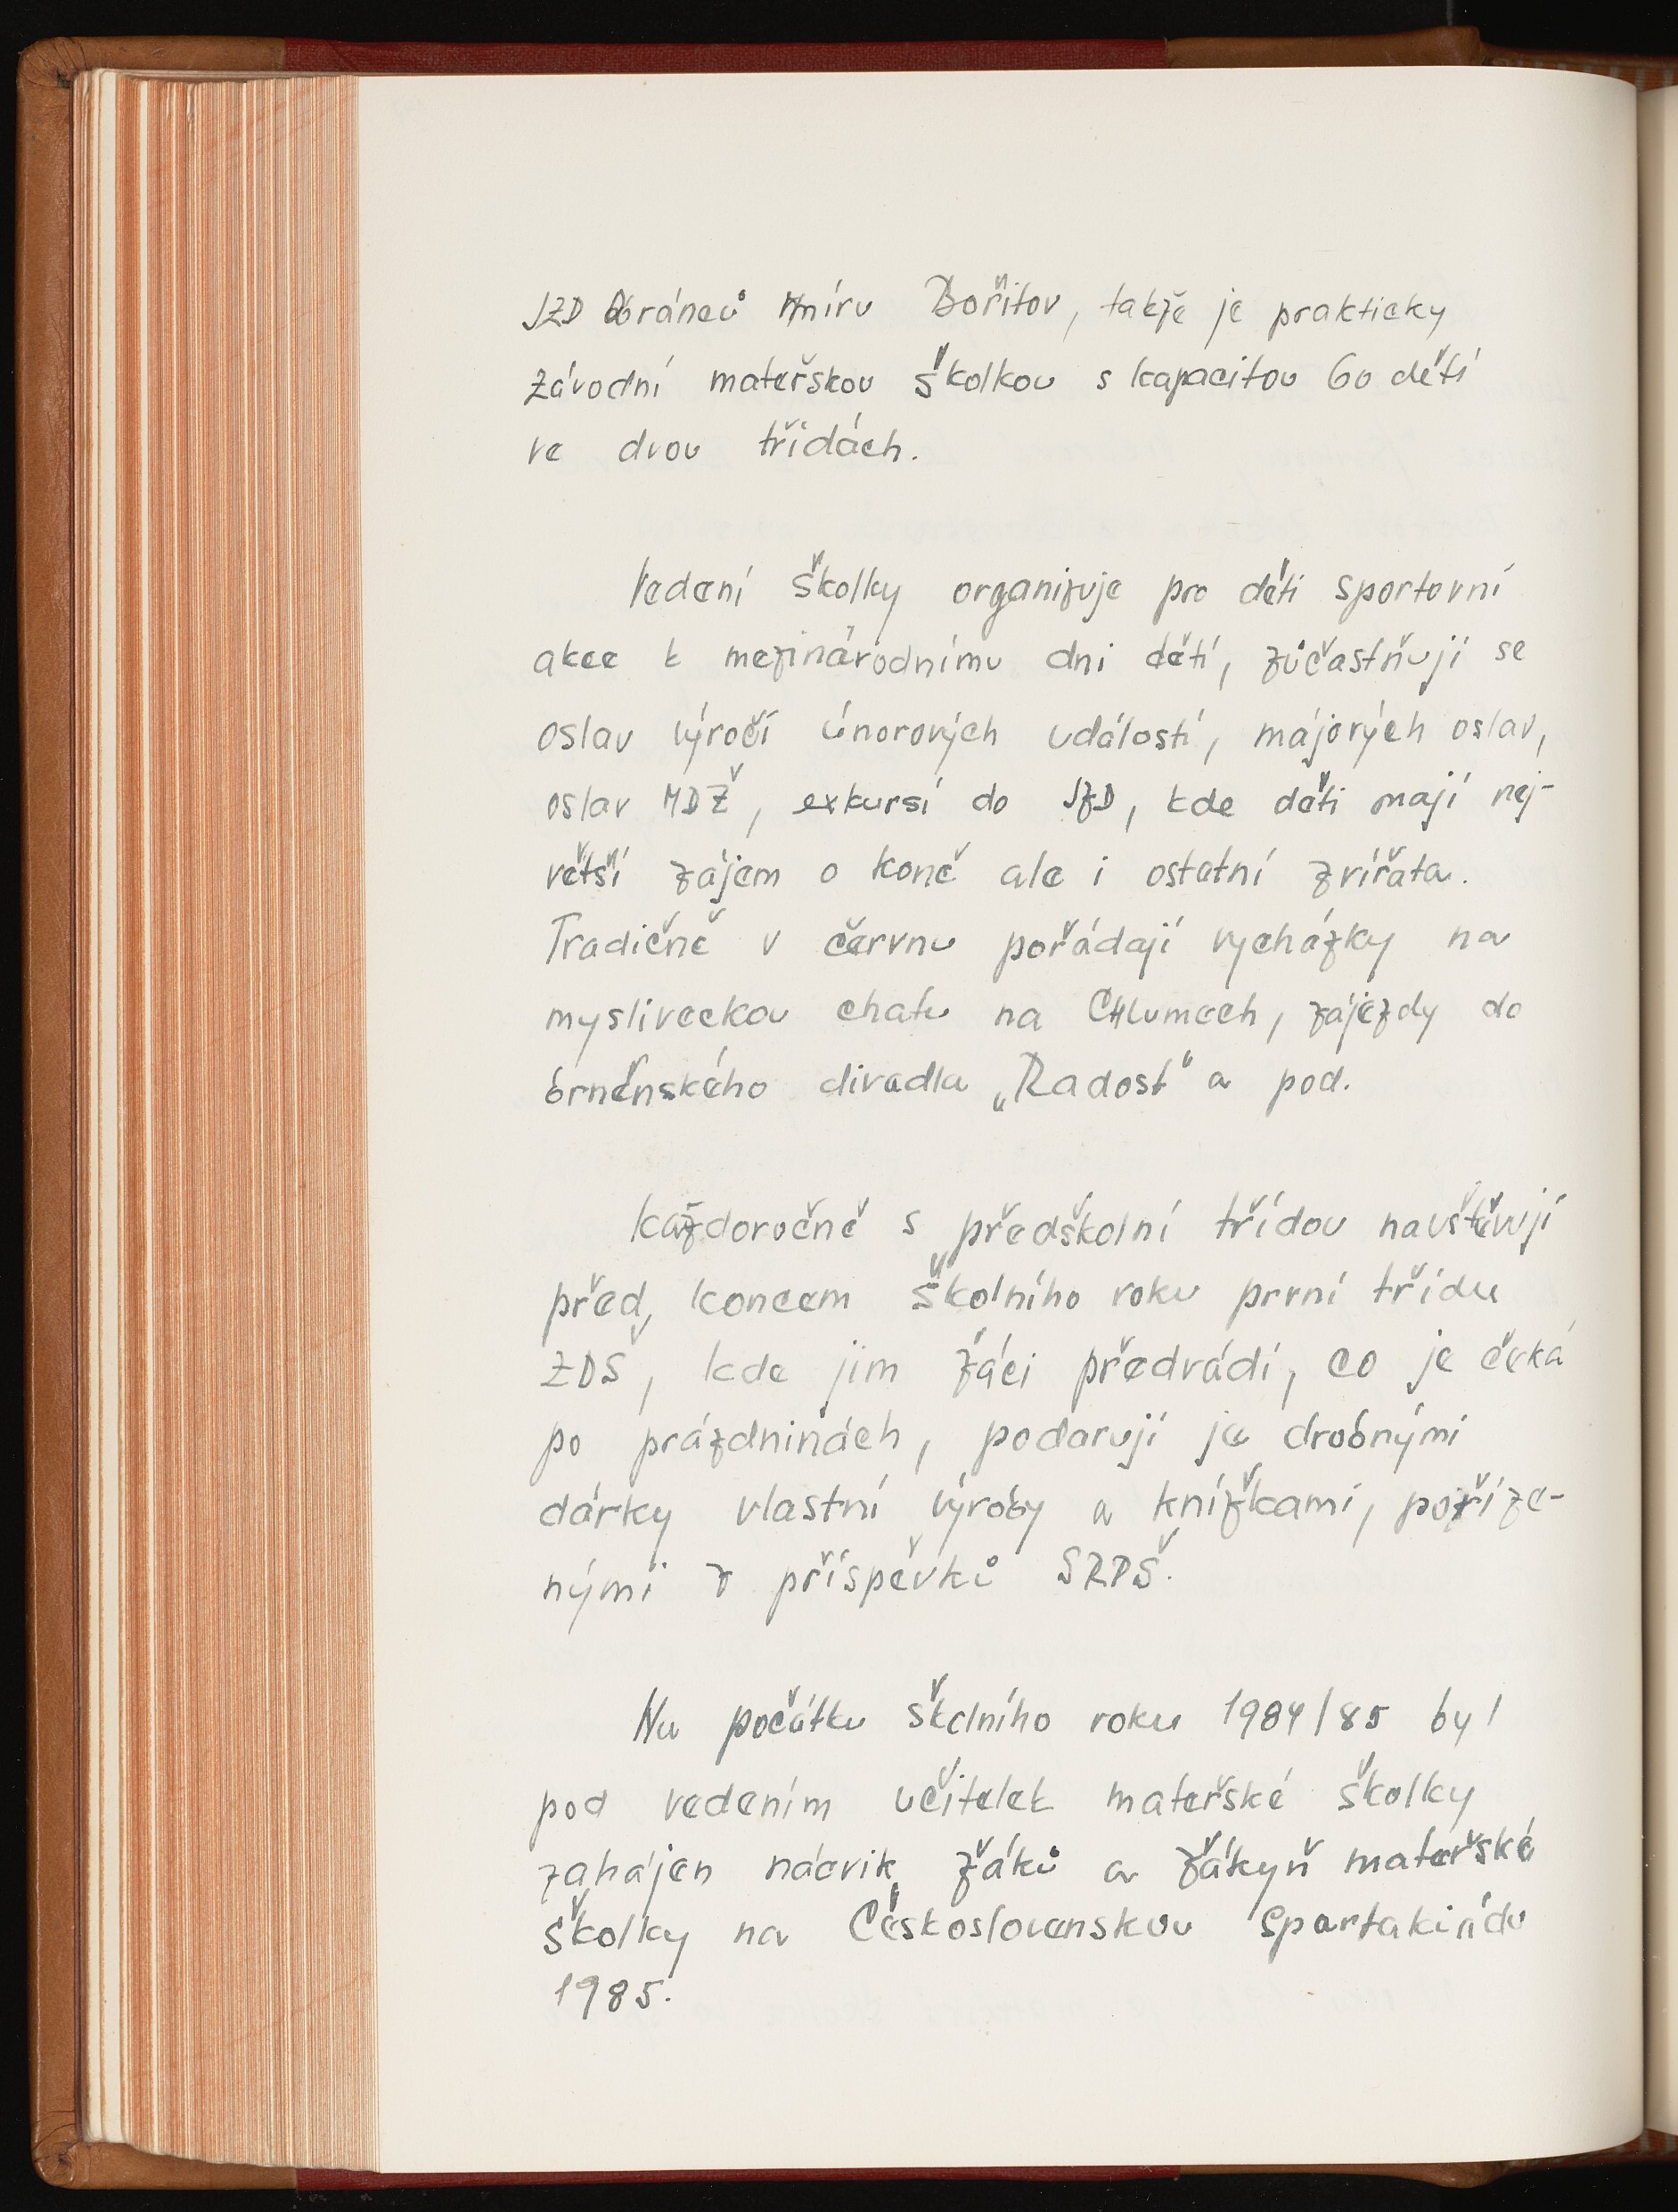 JZD Obránců míru Bořitov, takže je prakticky
závodní mateřskou školkou s kapacitou 60 dětí
ve dvou třídách.
Vedení školky organizuje pro děti sportovní
akce k mezinárodnímu dni dětí, zůčastňují se
oslav výročí únorových událostí, májových oslav,
oslav MDŽ, exkursí do JZD, kde děti mají nej-
větší zájem o koně ale i ostatní zvířata.
Tradičně v červnu pořádají vycházky na
mysliveckou chatu na Chlumech, zájezdy do
brněnského divadla „Radost“ a pod.
Každoročně s předškolní třídou navštěvují
před koncem školního roku první třídu
ZDŠ, kde jim žáci předvádí, co je čeká
po prázdninách, podarují je drobnými
dárky vlastní výroby a knížkami, poříze-
nými z příspěvků SRPŠ.
Na počátku školního roku 1984/85 byl
pod vedením učitelek mateřské školky
zahájen nácvik žáků a žákyň mateřské
školky na Československou Spartakiádu
1985.